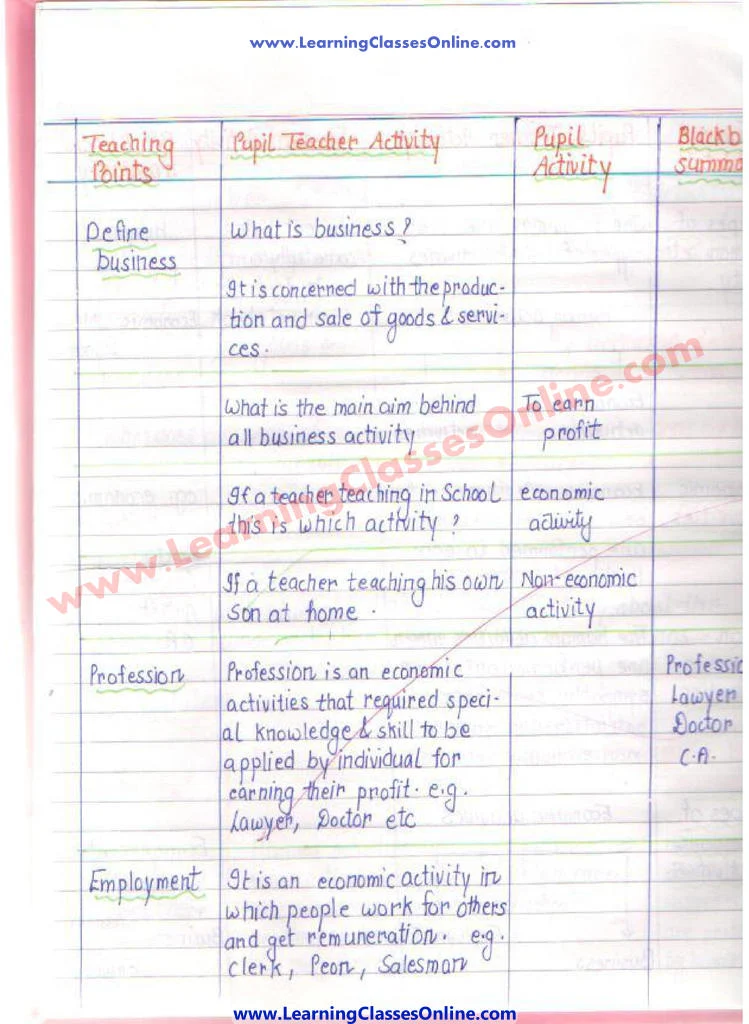 www.LearningClassesOnline.com
Teaching Points
Pupil Teacher Activity
Pupil Activity
Blackb
summa
Define
business
What is business?
It is concerned with the produc-
tion and sale of goods & servi-
ces.
What is the main aim behind
all business activity
To earn
profit
If a teacher teaching in School
this is which activity ?
economic
activity
If a teacher teaching his own
son at home .
Non-economic
activity
www.LearningClassesOnline.com
Profession
Profession is an economic
activities that required speci-
al knowledge & skill to be
applied by individual for
earning their profit. e.g.
Lawyer, Doctor etc
Professio
Lawyer
Doctor
C.A.
Employment
It is an economic activity in
which people work for others
and get remuneration. e.g.
clerk, Peon, Salesman
www.LearningClassesOnline.com